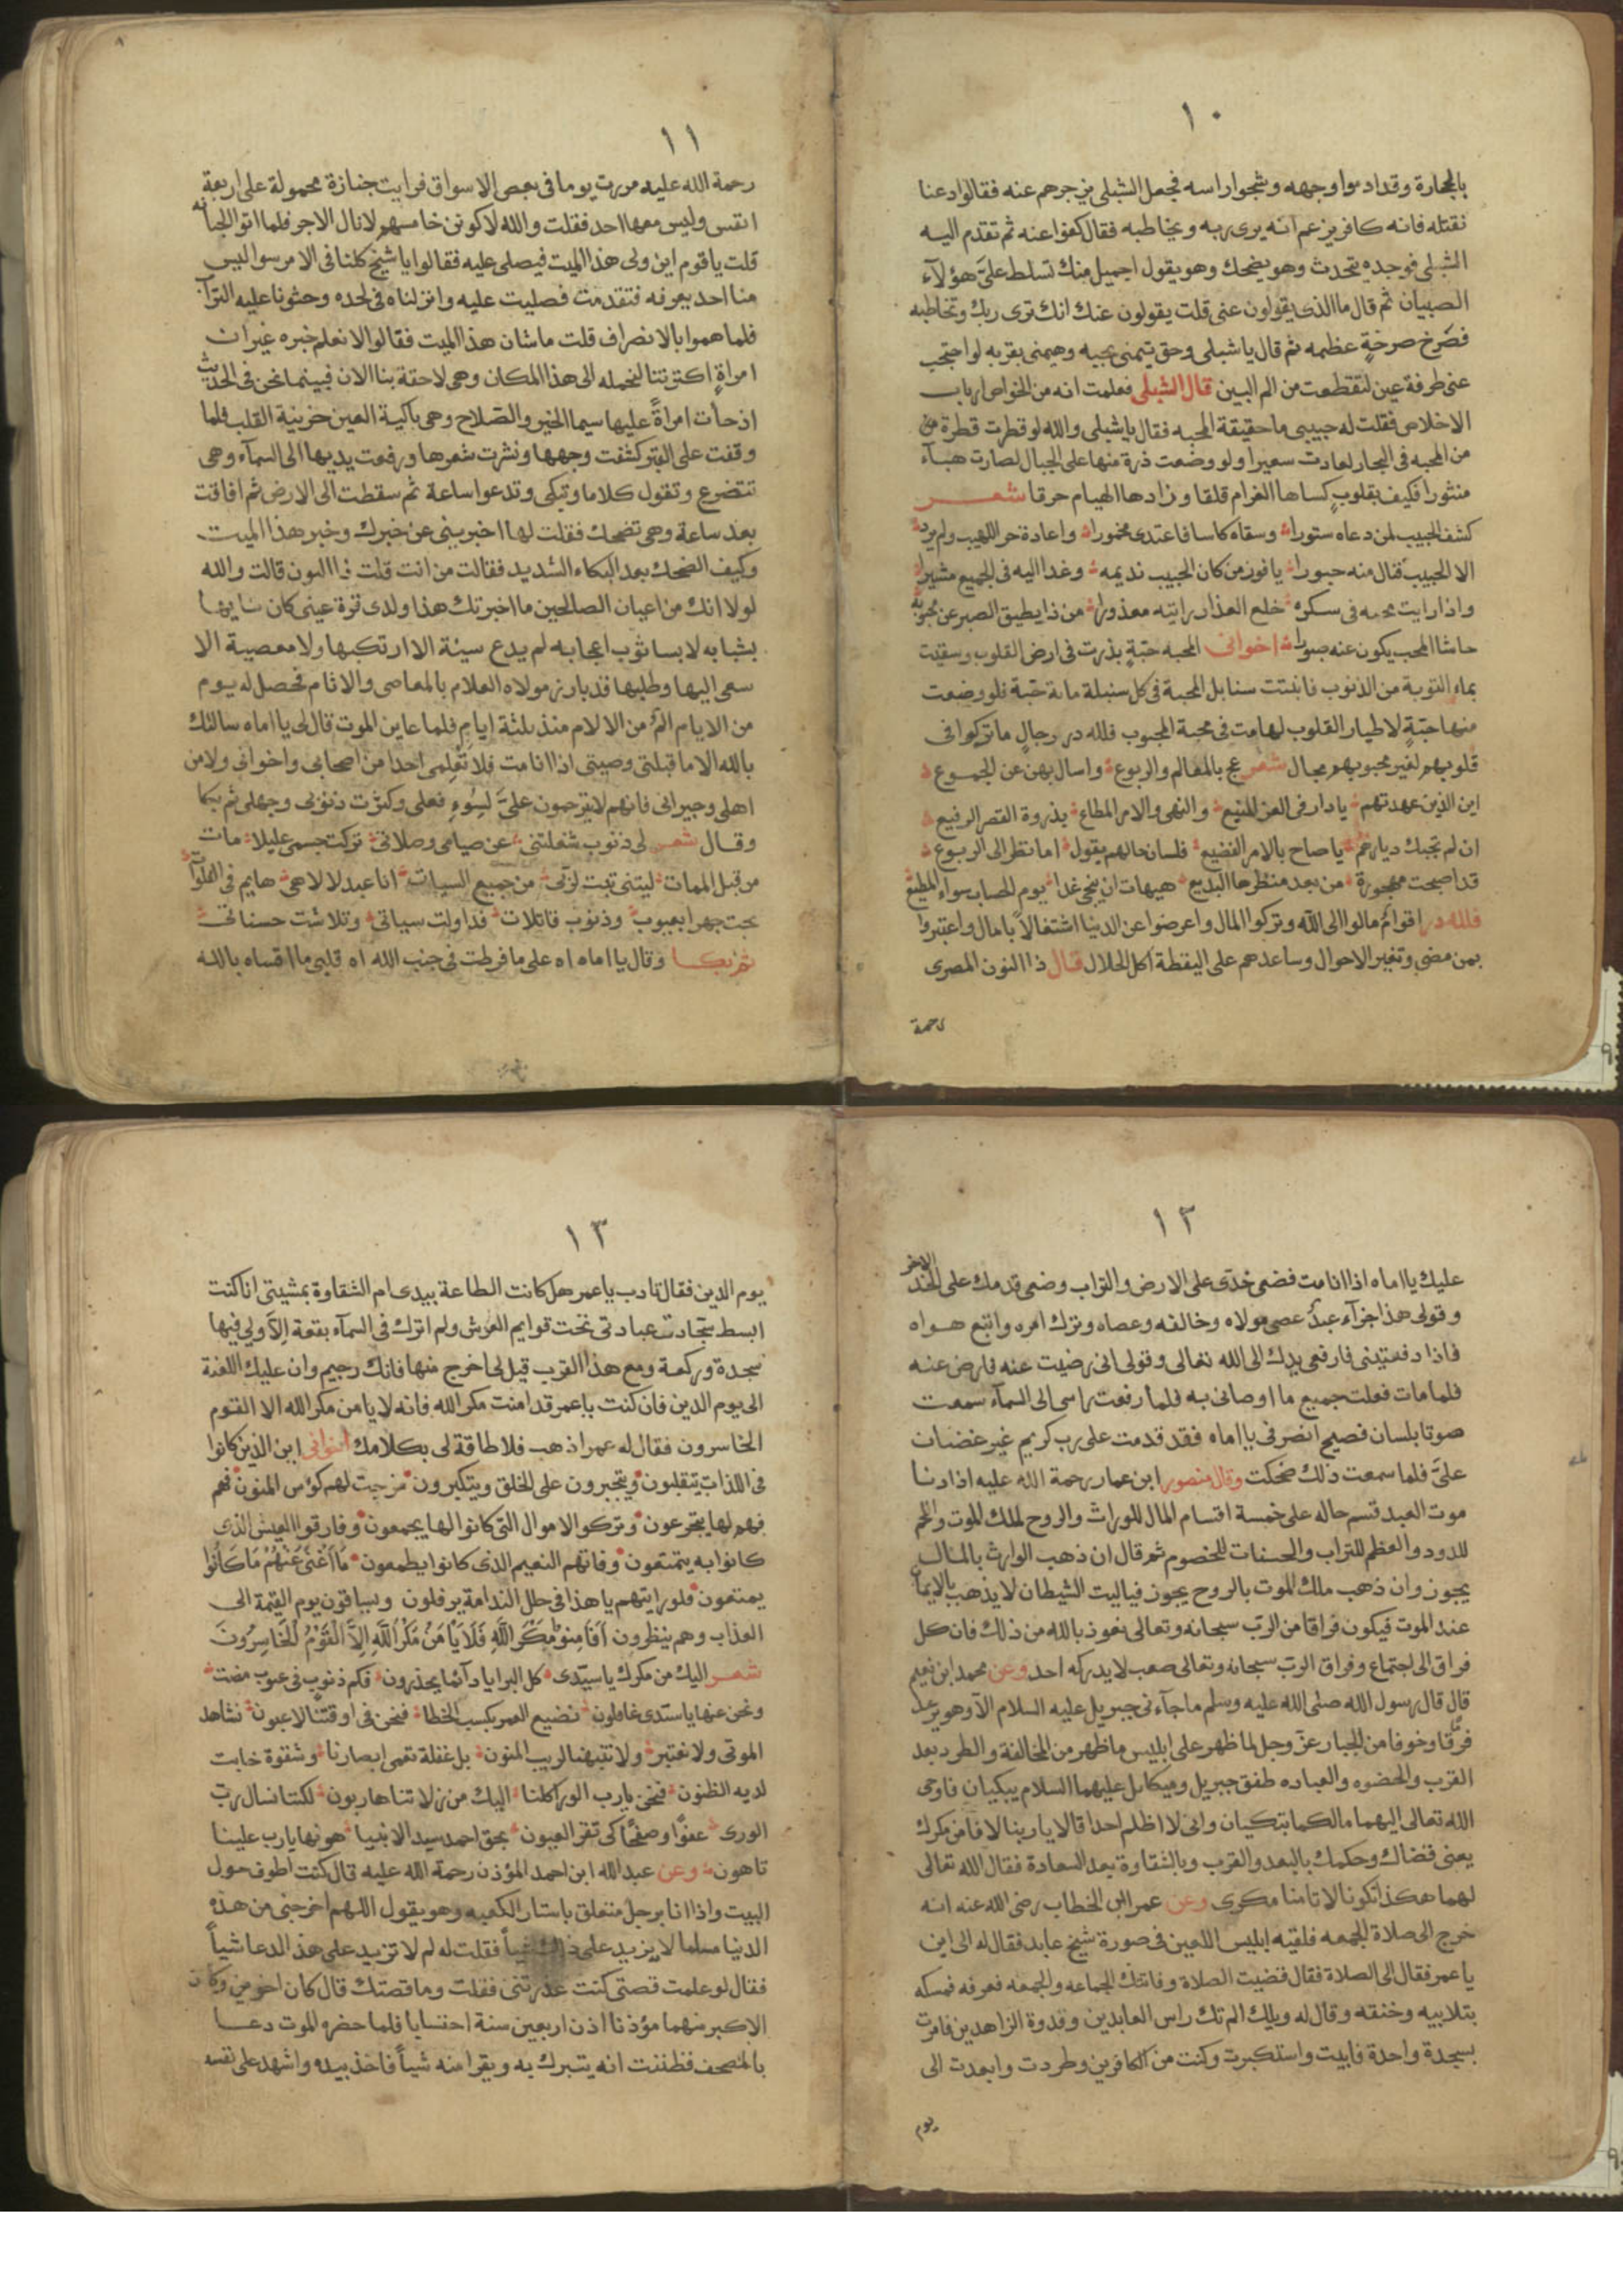 ١٠
بالحجارة وقد ادموا وجهه وشجوا راسه فجعل الشبلى يزجرهم عنه فقالوا دعنا
نقتله فانه كافر يزعم انه يرى ربه ويخاطبه فقال كفوا عنه ثم تقدم اليه
الشبلى فوجده يتحدث وهو يضحك وهو يقول اجميل منك تسلط علىَّ هؤلآء
الصبيان ثم قال ما الذى يقولون عنى قلت يقولون عنك انك ترى ربك وتخاطبه
فصرخ صرخةٍ عظيمه ثم قال ياشبلى وحق تيمنى بحبه وهيمنى بقربه لو احتجب
عنى طرفة عين لتقطعت من الم البين قال الشبلى فعلمت انه من الخواص ارباب
الاخلاص فقلت له حبيبى ما حقيقة المحبه فقال ياشبلى والله لو قطرت قطرة من
من المحبه فى البحار لعادت سعيرا ولو وضعت ذرة منها على الجبال لصارت هبآء
منثورا فكيف بقلوبٍ كساها الغرام قلقا وزادها الهيام حرقا شعر
كشف الحبيب لمن دعاه ستورا وسقاه كاسا فاعتدى مخمورا واعادة حر اللهيب ولم يرد
الا الحبيب فنال منه حبورا يافوز من كان الحبيب نديمه وغدا اليه فى الجميع مشيرا
واذا رايت محبه فى سكره خلع العذار رايته معذورا من ذا يطيق الصبر عن محبوبه
حاشا المحب يكون عنه صبورا اخوانى المحبه حبّةٍ بذرت فى ارض القلوب وسقيت
بماء التوبة من الذنوب فانبتت سنابل المحبة فى كل سنبلة مائة حبّة فلو وضعت
منها حبّةٍ لاطيار القلوب لهامت فى محبة المحبوب فلله در رجالٍ ما تركوا فى
قلوبهم لغير محبوبهم مجال شعر عج بالمعالم والربوع واسال بهن عن الجموع
اين الذين عهدتهم يا دار فى العز المنيع والنهى والامر المطاع بذروة القصر الرفيع
ان لم تجبك ديارهم ياصاح بالامر الفضيع فلسان حالهم يقول اما تنظر الى الربوع
قد اصبحت مهجورة من بعد منظرها البديع هيهات ان ينجى غدا يوم الحساب سواء المطيع
فلله در اقوامٌ مالوا الى الله وتركوا المال واعرضوا عن الدنيا اشتغالاً بامال واعتبروا
بمن مضى وتغير الاحوال وساعدهم على اليقظة اكل الحلال قال ذا النون المصرى
رحمة
١١
رحمة الله عليه مررت يوما فى بعض الاسواق فرايت جنازة محمولة على اربعة
انفس وليس معها احد فقلت والله لاكونن خامسهم لانال الاجر فلما اتوا الجبانه
قلت ياقوم اين ولى هذا الميت فيصلى عليه فقالوا ياشيخ كلنا فى الامر سوا ليس
منا احد يعرفه فتقدمت فصليت عليه وانزلناه فى لحده وحثونا عليه التراب
فلما هموا بالانصراف قلت ماشان هذا الميت فقالوا لا نعلم خبره غير ان
امراةٍ اكترتنا لنحمله الى هذا المكان وهى لاحقة بنا الان فبينما نحن فى الحديث
اذ جأت امراةً عليها سيما الخير والصّلاح وهى باكية العين حزينة القلب فلما
وقفت على القبر كشفت وجهها ونشرت شعرها ورفعت يديها الى السمآء وهى
تتضرع وتقول كلاما وتبكى وتدعوا ساعة ثم سقطت الى الارض ثم افاقت
بعد ساعة وهى تضحك فقلت لها اخبرينى عن خبرك وخبر هذا الميت
وكيف الضحك بعد البكاء الشديد فقالت من انت قلت ذا النون قالت والله
لولا انك من اعيان الصالحين ما اخبرتك هذا ولدى قرة عينى كان شايبها
بشبابه لابسا ثوب اعجابه لم يدع سيئة الا ارتكبها ولا معصية الا
سعى اليها وطلبها قد بارز مولاه العلام بالمعاصى والاثام فحصل له يوم
من الايام المٌ من الالام منذ ثلثة ايام فلما عاين الموت قال لى يا اماه سالتك
بالله الا ما قبلتى وصيتى اذا انا مت فلا تُعْلِمى احدا من اصحابى واخوانى ولا من
اهلى وجيرانى فانهم لا يترحمون علىَّ لسُوءِ فعلى وكثرت ذنوبى وجهلى ثم بكا
وقال شعر لى ذنوب شغلتنى عن صيامى وصلاتى تركت جسمى عليلا مات
من قبل الممات ليتنى تبت لربى من جميع السيات انا عبد لالاهى هايم فى الفلوات
بحت جهرا بعيوب وذنوب قاتلات قد اولت سياتى وتلاشت حسناتى
ثم بكا وقال يا اماه اه على ما فرطت فى جنب الله اه قلبى ما اقساه بالله
١٢
عليك يا اماه اذا انا مت فضعى خدّى على الارض والتراب وضعى قدمك على الخد الاخر
وقولى هذا جزآء عبدٌ عصى مولاه وخالفه وعصاه وترك امره واتبع هواه
فاذا دفعتينى فارفعى يدك الى الله تعالى وقولى انى رضيت عنه فارض عنه
فلما مات فعلت جميع ما اوصانى به فلما رفعت راسى الى السمآء سمعت
صوتا بلسان فصيح انصرفى يا اماه فقد قدمت على رب كريم غير غضبان
علىَّ فلما سمعت ذلك ضحكت وقال منصور ابن عمار رحمة الله عليه اذا دنا
موت العبد قسم حاله على خمسة اقسام المال للوراث والروح لملك الموت واللحم
للدود والعظم للتراب والحسنات للخصوم ثم قال ان ذهب الوارث بالمال
يجوز وان ذهب ملك الموت بالروح يجوز فياليت الشيطان لا يذهب بالايمان
عند الموت فيكون فراقا من الربّ سبحانه وتعالى نعوذ بالله من ذلك فان كل
فراق الى اجتماع وفراق الرب سبحانه وتعالى صعب لا يدركه احد وعن محمد ابن نعيم
قال قال رسول الله صلى الله عليه وسلم ما جآءنى جبريل عليه السلام الا وهو يرعد
فرقًا وخوفا من الجبار عزّ وجل لما ظهر على ابليس ما ظهر من المخالفة والطرد بعد
القرب والحضوه والعباده طفق جبريل وميكايل عليهما السلام يبكيان فاوحى
الله تعالى اليهما مالكما تبكيان وانى لا اظلم احدا قالا يا ربنا لا نأمن مكرك
يعنى قضاك وحكمك بالبعد والقرب وبالشقاوة بعد السعادة فقال الله تعالى
لهما هكذا تكونا لا تامنا مكرى وعن عمر ابن الخطاب رضى الله عنه انه
خرج الى صلاة الجمعه فلقيه ابليس اللعين فى صورة شيخ عابد فقال له الى اين
ياعمر فقال الى الصلاة فقال قضيت الصلاة وفاتتك الجماعه والجمعه فعرفه فمسكه
بتلابيبه وخنقه وقال له ويلك الم تك راس العابدين وقدوة الزاهدين فامرت
بسجدة واحدة فابيت واستكبرت وكنت من الكافرين وطردت وابعدت الى
يوم
١٣
يوم الدين فقال تادب ياعمر هل كانت الطاعة بيدى ام الشقاوة بمشيتى انا كنت
ابسط سجادت عبادتى تحت قوايم العرش ولم اترك فى السمآء بقعة اِلاَّ ولى فيها
سجدة وركعة ومع هذا القرب قيل لى اخرج منها فانك رجيم وان عليك اللعنة
الى يوم الدين فان كنت ياعمر قد امنت مكر الله فانه لا يامن مكر الله الا القوم
الخاسرون فقال له عمر اذهب فلا طاقة لى بكلامك اخوانى اين الذين كانوا
فى اللذات يتقلبون ويتجبرون على الخلق ويتكبرون مزجت لهم كؤس المنون فهم
فهم لها يتجرعون وتركوا الاموال التى كانوا لها يجمعون وفارقوا العيش الذى
كانوا به يتمتعون وفاتهم النعيم الذى كانوا يطمعون مَا اَغْنَى عَنْهُمْ مَا كَانُوا
يمتعون فلو رايتهم ياهذا فى حلل الندامة يرفلون ويساقون يوم القيمة الى
العذاب وهم ينظرون اَفَاَمِنوُا مَكْرَ اللَّهِ فَلَا يَأْمَنُ مَكْرُ اللَّهِ اِلاَّ الْقَوْمُ الْخَاسِرُونَ
شعر اليك من مكرك ياسيّدى كل البرايا دآئما يحذرون فكم ذنوب فى عيوب مضت
ونحن عنها ياسيّدى غافلون نضيع العمر بكسب الخطا فنحن فى اوقتنا لاعبون نشاهد
الموتى ولا نعتبر ولا تنبهنا لريب المنون بل غفلة تعمى ابصارنا وشقوة خابت
لديه الظنون فنحن يارب الورا كلنا اليك من زلاتنا هاربون لكننا نسال ربّ
الورى عفوًا وصفحًا كى تقر العيون بحق احمد سيد الانبيا هونها يارب علينا
تاهون وعن عبد الله ابن احمد المؤذن رحمة الله عليه قال كنت اطوف حول
البيت واذا انا برجل متعلق باستار الكعبه وهو يقول اللهم اخرجنى من هذه
الدنيا مسلما لا يزيد على ذلك شياً فقلت له لم لا تزيد على هذا الدعا شياً
فقال لو علمت قصتى كنت عذرتنى فقلت وما قصتك قال كان اخوين وكان
الاكبر منهما مؤذنا اذن اربعين سنة احتسابا فلما حضره الموت دعا
بالمصحف فظننت انه يتبرك به ويقرا منه شياً فاخذ بيده واشهد على نفسه